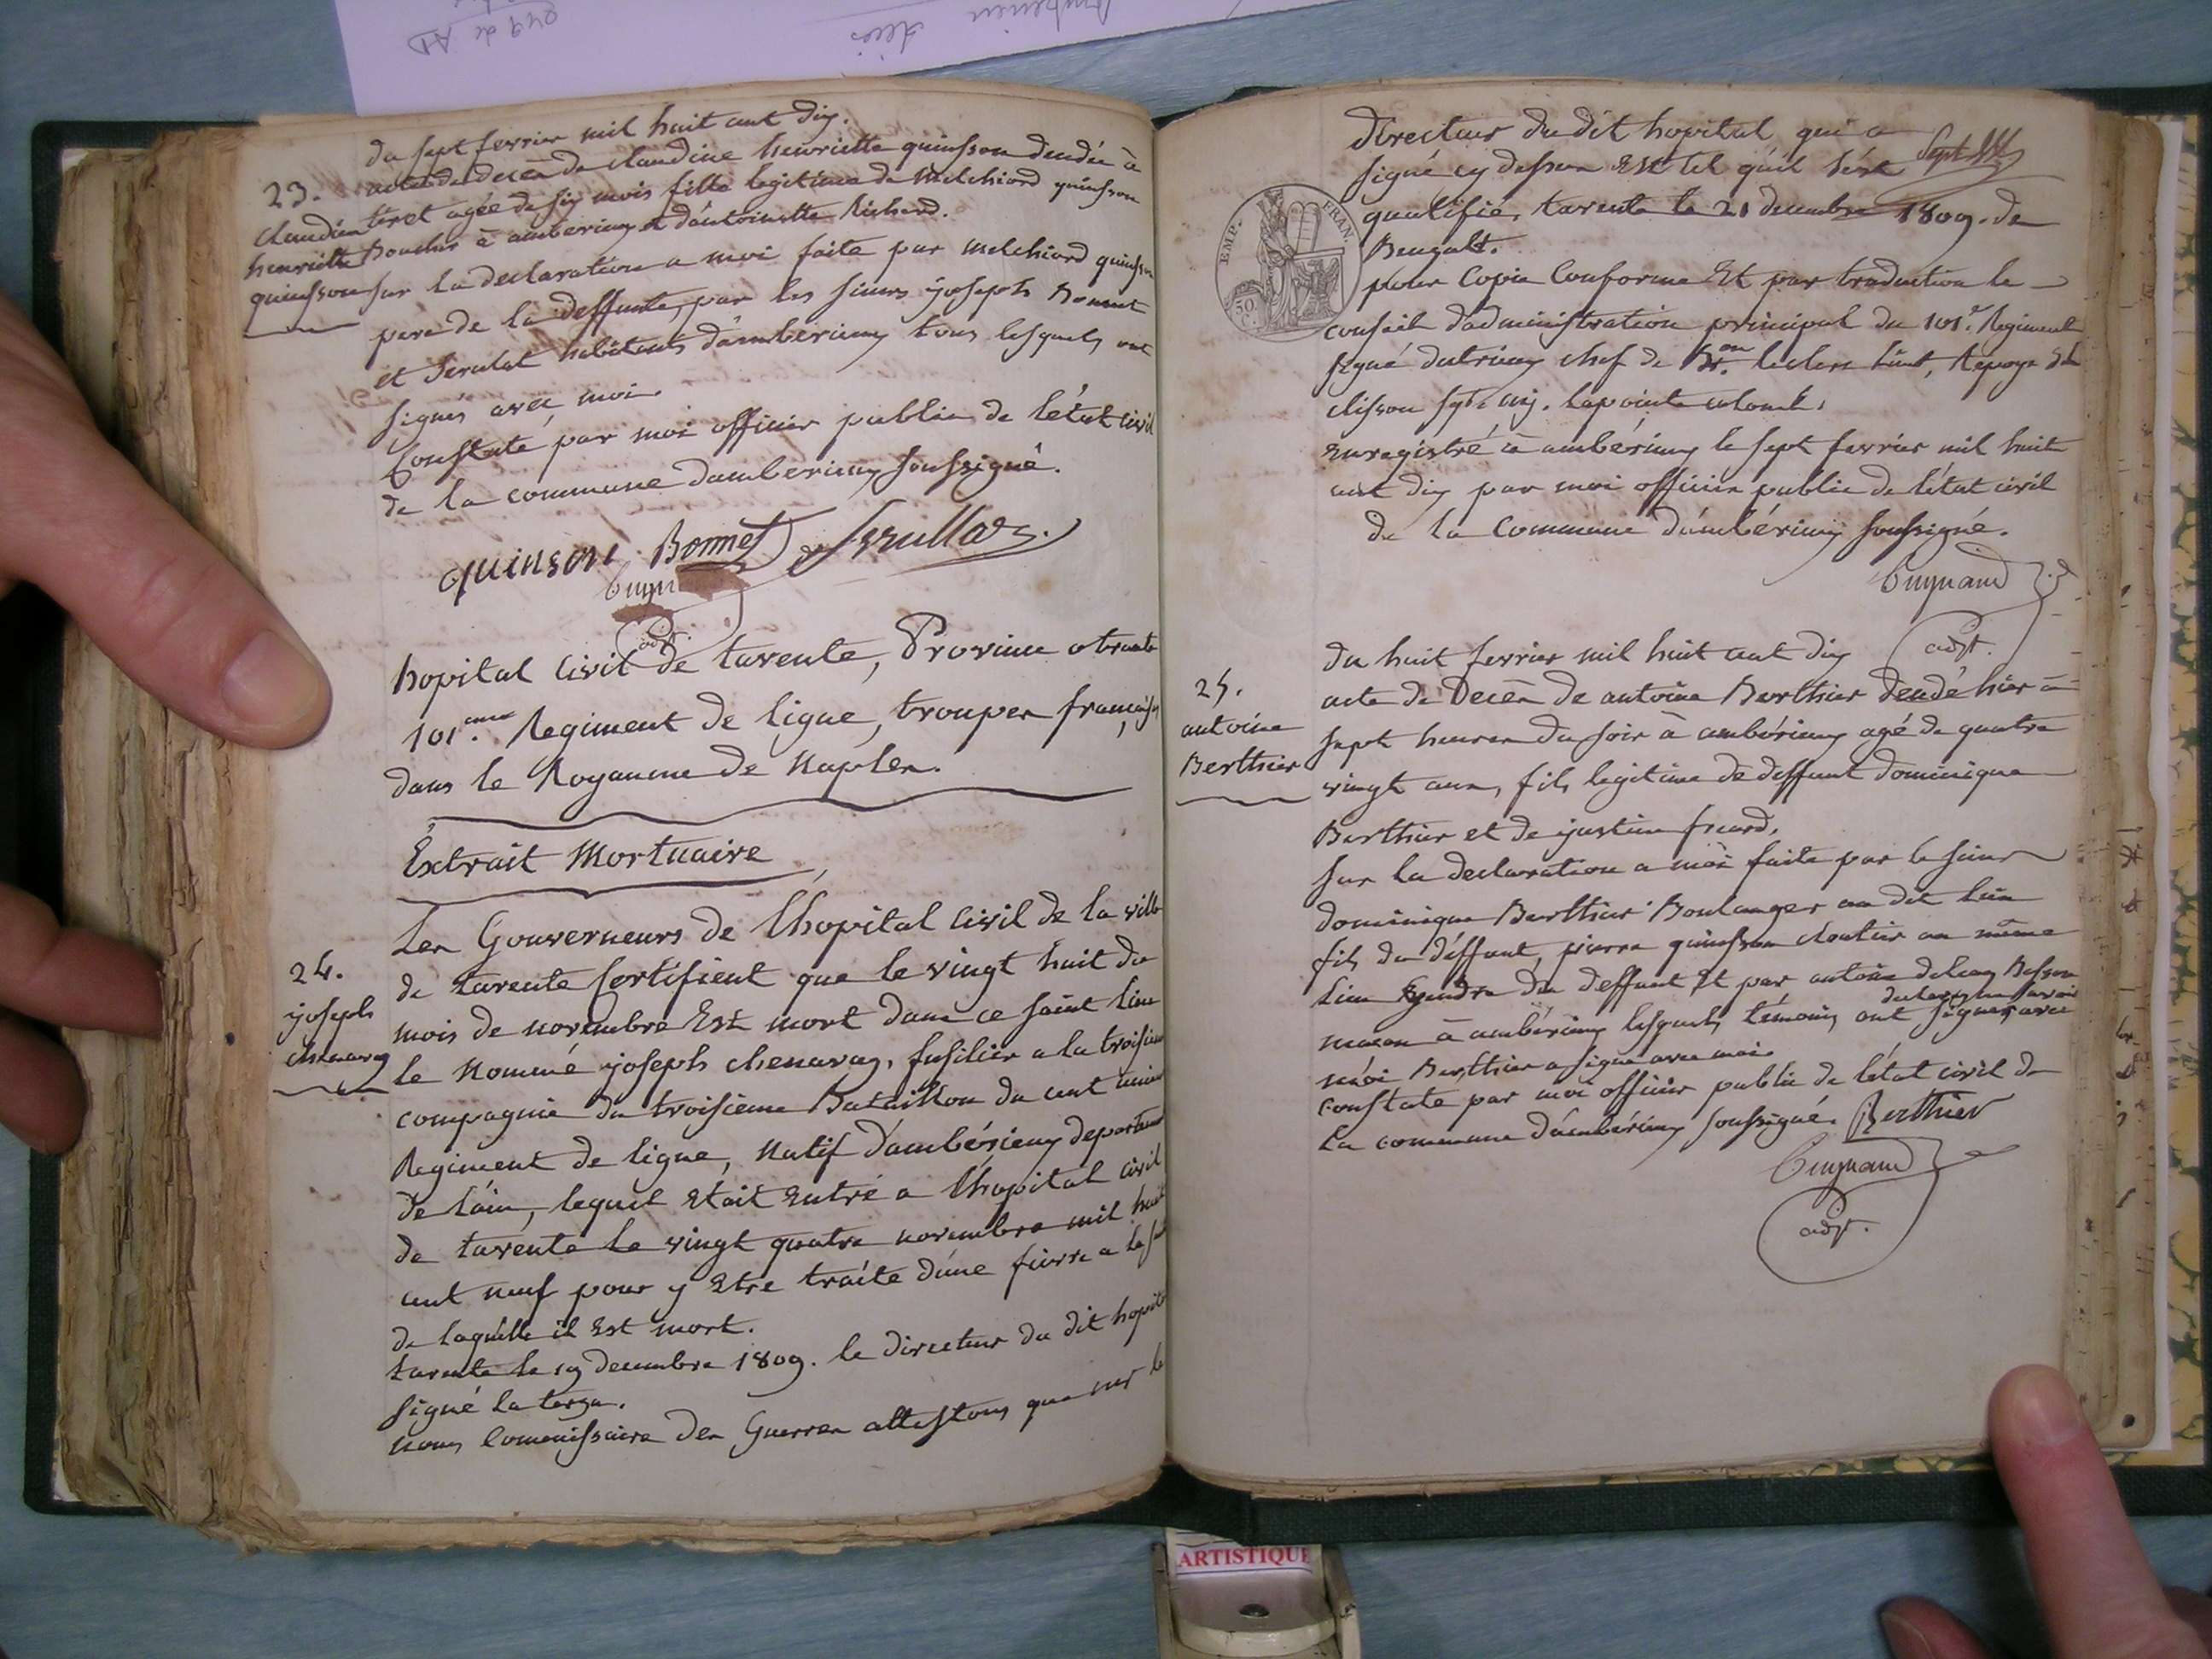 du sept fevrier mil huit cent dix.
23. acte de decès de claudine henriette quinsson decedée à
claudine téret agée de six mois fille legitime de melchiord quinsson
henriette Boucher à amberieux et d'antoinette Richerd.
quinsson sur la declaration a moi faite par melchiord quinsson
pere de la deffunte, par les sieurs joseph Bonnet
et Serulat habitants d'amberieux tous lesquels ont
signés avec moi.
Constaté par moi officier public de l'état civil
de la commune d'amberieux soussigné.
quinson Bonnet Serullaz
Cugn
adjt.
hopital Civil de tarente, Province otrante
101.eme Regiment de ligne, troupes françaises
dans le Royaume de Naples.
Extrait Mortuaire
Les Gouverneurs de l'hopital Civil de la ville
24. de tarente Certifient que le vingt huit du
joseph mois de novembre Est mort dans ce saint lieu
chenavay le nommé joseph chenavay, fusilier a la troisieme
compagnie du troisieme Bataillon du cent unieme
Regiment de ligne, natif d'ambérieux departement
de l'ain, lequel Etait Entré a l'hopital civil
de tarente le vingt quatre novembre mil huit
cent neuf pour y Etre traité d'une fievre a la
de laquelle il Est mort.
tarente le 19 decembre 1809. le directeur du dit hopital
signé la terza.
nous Commissaire des Guerres attestons que mr le
directeur du dit hopital qui a
signé cy dessus Est tel qu'il s'est
qualifié, tarente le 21 decembre 1809. de
Bengalt.
EMP. FRAN.
50 C.
pour Copie Conforme Et par traduction le
conseil d'administration principal du 101.e Regiment
signé dutrieux chef de Bt.on leclerc lieut, Repoye Et
clisson lapointe colonel,
Enregistré à ambérieux le sept fevrier mil huit
cent dix par moi officier public de l'état civil
de la Commune d'ambérieux soussigné.
Cugnand
adjt.
du huit fevrier mil huit cent dix
25. acte de Decès de antoine Berthier decedé hier à
antoine sept heures du soir à ambérieux agé de quatre
Berthier vingt ans, fils legitime de deffunt dominique
Berthier et de justine freard.
sur la declaration a moi faite par le sieur
dominique Berthier Boulanger au dit lieu
fils du déffunt, pierre quinsson cloutier au même
lieu gendre du deffunt Et par antoine Besson
maçon à ambérieux lesquels témoins ont signés avec
moi Berthier a signé avec moi.
constaté par moi officier public de l'état civil de
la commune d'ambérieux soussigné. Berthier
Cugnand
adjt.
ARTISTIQUE